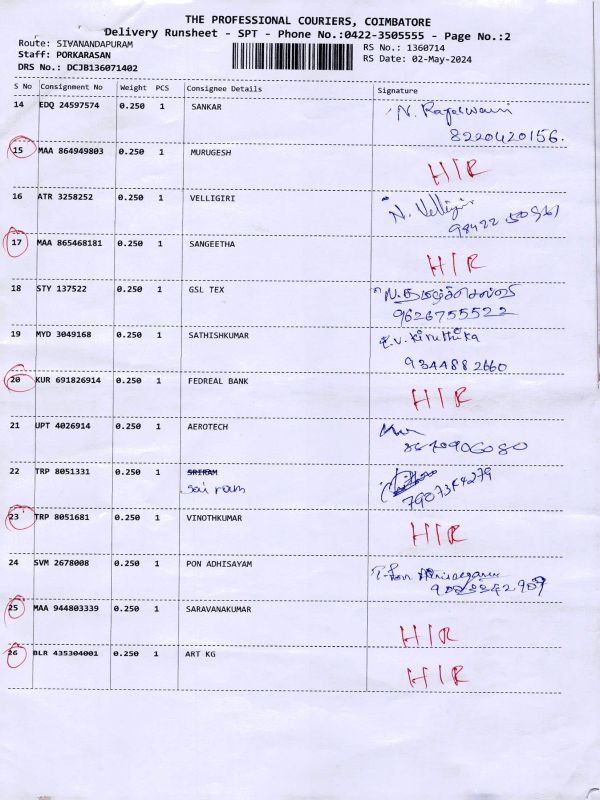 THE PROFESSIONAL COURIERS, COIMBATORE
Delivery Runsheet - SPT - Phone No.:0422-3505555 - Page No.:2
Route: SIVANANDAPURAM
RS No.: 1360714
Staff: PORKARASAN
RS Date: 02-May-2024
DRS No.: DCJB136071402
S No Consignment No Weight PCS Consignee Details Signature
14 EDQ 24597574 0.250 1 SANKAR N. Rajeswari
8220420156.
15 MAA 864949803 0.250 1 MURUGESH
HIR
16 ATR 3258252 0.250 1 VELLIGIRI N. Velligiri
98422 50961
17 MAA 865468181 0.250 1 SANGEETHA
HIR
18 STY 137522 0.250 1 GSL TEX N. தமிழ்ச்செல்வி
9626755522
19 MYD 3049168 0.250 1 SATHISHKUMAR K.V. Kiruthika
9344882660
20 KUR 691826914 0.250 1 FEDREAL BANK
HIR
21 UPT 4026914 0.250 1 AEROTECH
22 TRP 8051331 0.250 1 SRIRAM
Sai ram
23 TRP 8051681 0.250 1 VINOTHKUMAR
HIR
24 SVM 2678008 0.250 1 PON ADHISAYAM
25 MAA 944803339 0.250 1 SARAVANAKUMAR
HIR
26 BLR 435304001 0.250 1 ART KG
HIR